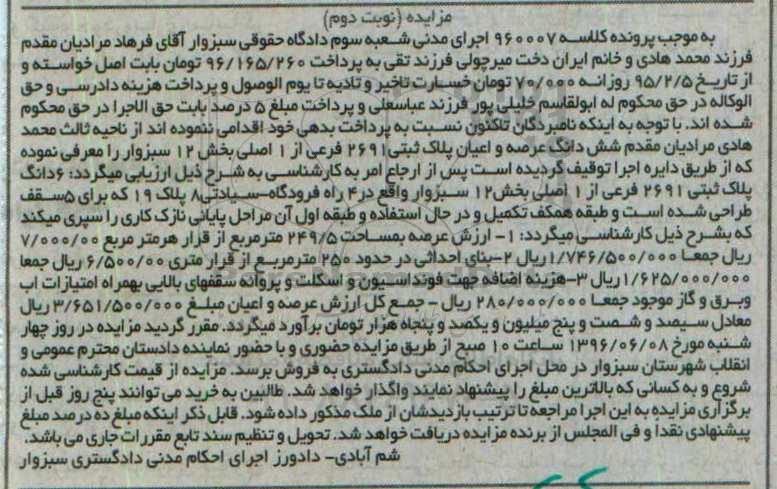 مزایده (نوبت دوم)
به موجب پرونده کلاسه ۹۶۰۰۰۷ اجرای مدنی شعبه سوم دادگاه حقوقی سبزوار آقای فرهاد مرادیان مقدم
فرزند محمد هادی و خانم ایران دخت میرچولی فرزند تقی به پرداخت ۹۶/۱۶۵/۲۶۰ تومان بابت اصل خواسته و
از تاریخ ۹۵/۲/۵ روزانه ۷۰/۰۰۰ تومان خسارت تاخیر و تادیه تا یوم الوصول و پرداخت هزینه دادرسی و حق
الوکاله در حق محکوم له ابولقاسم خلیلی پور فرزند عباسعلی و پرداخت مبلغ ۵ درصد بابت حق الاجرا در حق محکوم
شده اند. با توجه به اینکه نامبردگان تاکنون نسبت به پرداخت بدهی خود اقدامی ننموده اند از ناحیه ثالث محمد
هادی مرادیان مقدم شش دانگ عرصه و اعیان پلاک ثبتی ۲۶۹۱ فرعی از ۱ اصلی بخش ۱۲ سبزوار را معرفی نموده
که از طریق دایره اجرا توقیف گردیده است پس از ارجاع امر به کارشناسی به شرح ذیل ارزیابی میگردد: ۶دانگ
پلاک ثبتی ۲۶۹۱ فرعی از ۱ اصلی بخش۱۲ سبزوار واقع در۴ راه فرودگاه-سیادتی۸ پلاک ۱۹ که برای ۵سقف
طراحی شده است و طبقه همکف تکمیل و در حال استفاده و طبقه اول آن مراحل پایانی نازک کاری را سپری میکند
که بشرح ذیل کارشناسی میگردد: ۱- ارزش عرصه بمساحت ۲۴۹/۵ مترمربع از قرار هرمتر مربع ۷/۰۰۰/۰۰۰
ریال جمعا ۱/۷۴۶/۵۰۰/۰۰۰ریال ۲-بنای احداثی در حدود ۲۵۰ مترمربع از قرار متری ۶/۵۰۰/۰۰ ریال جمعا
۱/۶۲۵/۰۰۰/۰۰۰ریال ۳-هزینه اضافه جهت فونداسیون و اسکلت و پروانه سقفهای بالایی بهمراه امتیازات اب
وبرق و گاز موجود جمعا ۲۸۰/۰۰۰/۰۰۰ ریال - جمع کل ارزش عرصه و اعیان مبلغ ۳/۶۵۱/۵۰۰/۰۰۰ ریال
معادل سیصد و شصت و پنج میلیون و یکصد و پنجاه هزار تومان برآورد میگردد. مقرر گردید مزایده در روز چهار
شنبه مورخ ۱۳۹۶/۰۶/۰۸ ساعت ۱۰ صبح از طریق مزایده حضوری و با حضور نماینده دادستان محترم عمومی و
انقلاب شهرستان سبزوار در محل اجرای احکام مدنی دادگستری به فروش برسد. مزایده از قیمت کارشناسی شده
شروع و به کسانی که بالاترین مبلغ را پیشنهاد نمایند واگذار خواهد شد. طالبین به خرید می توانند پنج روز قبل از
برگزاری مزایده به این اجرا مراجعه تا ترتیب بازدیدشان از ملک مذکور داده شود. قابل ذکر اینکه مبلغ ده درصد مبلغ
پیشنهادی نقدا و فی المجلس از برنده مزایده دریافت خواهد شد. تحویل و تنظیم سند تابع مقررات جاری می باشد.
شم آبادی- دادورز اجرای احکام مدنی دادگستری سبزوار